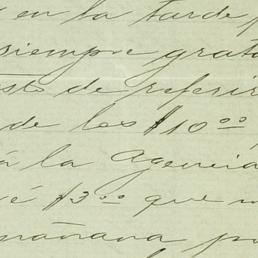 en la tarde
siempre grat
de referir
de los $10.00
á la Agencia
$3.00 que
mañana